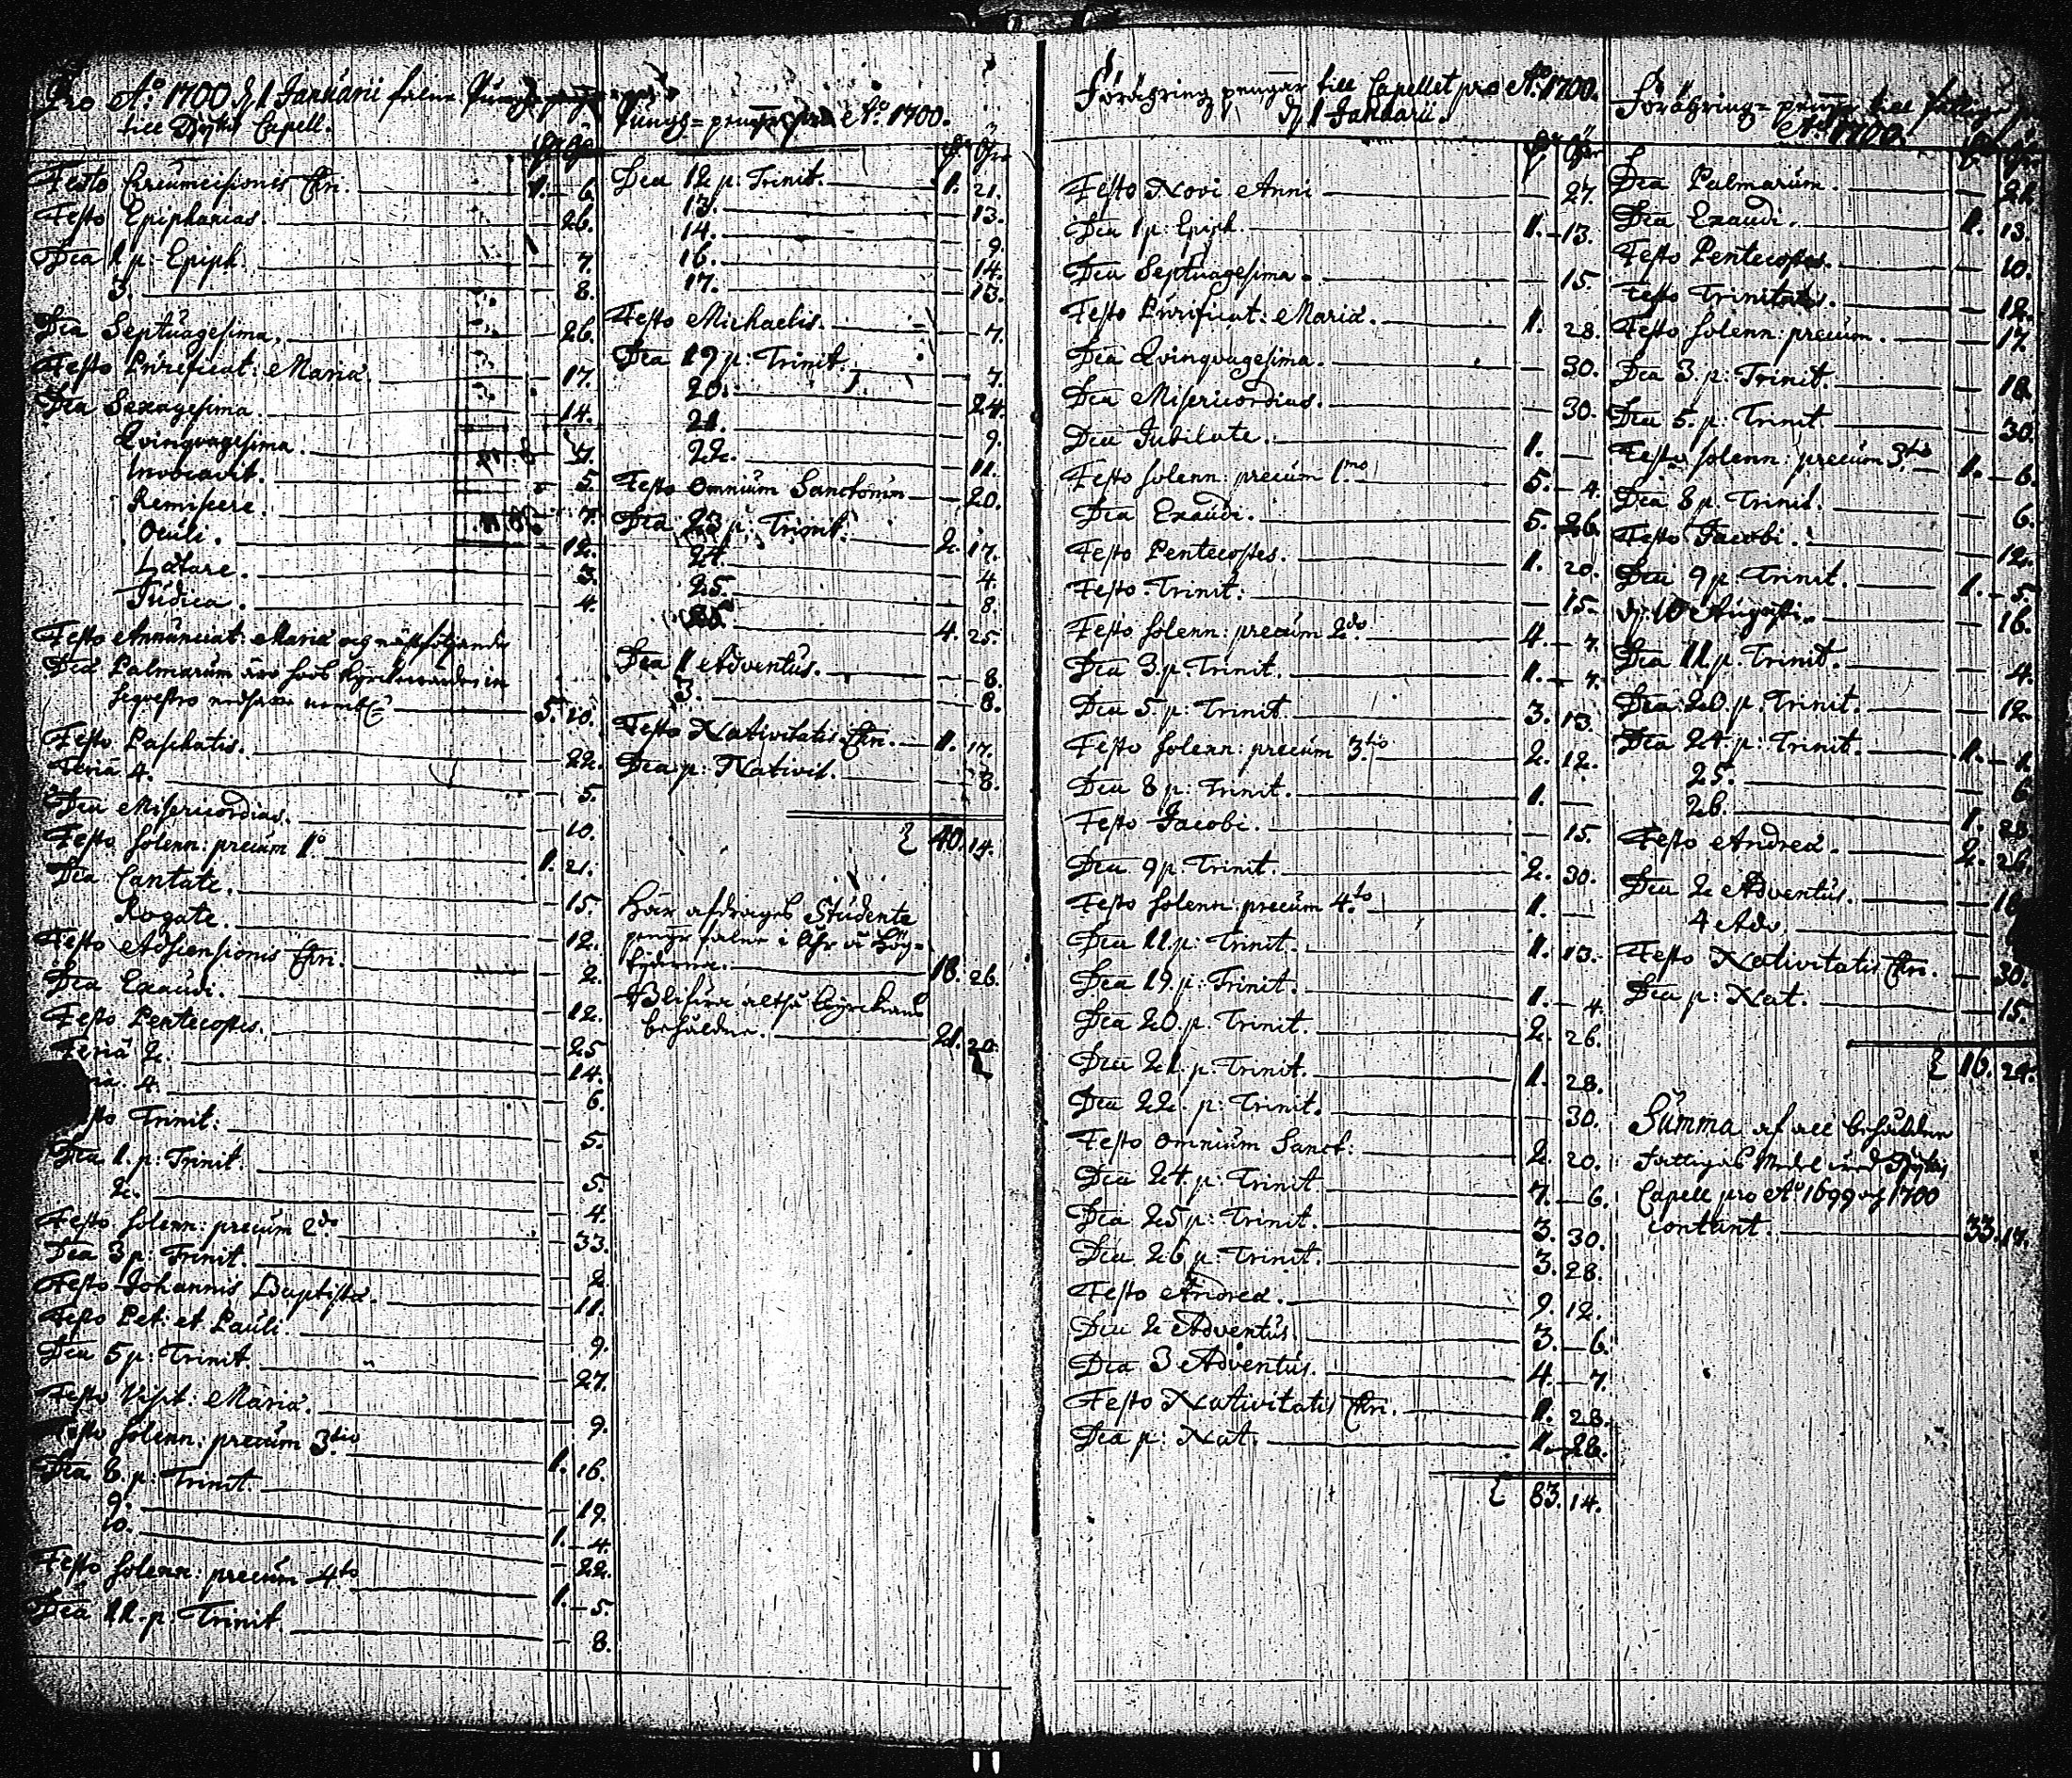 Pro Aº 1700 d. 1 Januarii falne Pungs
till Capell.
Festo Circumcisionis Chri. 1. 6.
Festo Epiphanias. 26.
Dca 1 p. Epiph. 7.
3. 8.
Dca Septuagesima. 26.
Festo Purificat: Mariæ. 17.
Dca Sexagesima. 14.
Qvinqvagesima. 7.
Invocavit. 5.
Reminscere. 7.
Oculi. 12.
Lætare. 3.
Judica. 4.
Festo Annunciat: Mariæ och nästfölgande
Dca Palmarum äro hoos Kyrkiowärden in
seqvestro 5. 20.
Festo Paschatis. 22.
Feria 4. 5.
Dca Misericordias. 10.
Festo solenn: precum 1º 1. 21.
Dca Cantate. 15.
Rogate. 12.
Festo Adscensionis Chri. 2.
Dca Exaudi. 12.
Festo Pentecostes. 25
Feriâ 2. 14.
4. 6.
Trinit: 5.
Dca 1. p: Trinit. 5.
2. 4.
Festo solenn: precum 2do 33.
Dca 3 p: Trinit. 2.
Festo Johannis Baptistæ. 11.
Festo Pet: et Pauli. 9.
Dca 5 p: Trinit 27.
Festo Visit: Mariæ. 9.
Festo solenn: precum 3tio 1. 16.
Dca 8. p: Trinit. 19.
9. 1. 4.
10. 22.
Festo solenn: precum 4to 1. 5.
Dca 11. p: Trinit. 8.
Pungs=penger pro Aº 1700.
Dca 12 p: Trinit. 1. 21.
13. 13.
14. 9.
16. 14.
17. 13.
Festo Michaelis. 7.
Dca 19 p: Trinit. 7.
20. 24.
21. 9.
22. 11.
Festo Omnium Sanctorum 20.
Dca 23 p: Trinit. 2. 17.
24. 4.
25. 8.
4. 25.
Dca 1 Adventus. 8.
3. 8.
Festo Nativitatis Chri. 1. 17.
Dca p: Nativit. 8.
40. 14.
Här afdrages Studente
penger falne i Åhr å Hög=
tyderne. 18. 26.
Blifwa altså Kyrckians
behåldne. 21. 20.
Förähring penger till Capellet pro Aº 1700.
d. 1 Januarii.
Festo Novi Anni 27.
Dca 1 p: Epiph. 1. 13.
Dca Septuagesima. 15.
Festo Purificat: Mariæ. 1. 28.
Dca Qvinqvagesima. 30.
Dca Misericordias. 30.
Dca Jubilate. 1. —
Festo solenn: precum 1mo 5. 4.
Dca Exaudi. 5. 26.
Festo Pentecostes. 1. 20.
Festo Trinit: 15.
Festo solenn: precum 2do 4. 7.
Dca 3. p: Trinit. 1. 7.
Dca 5. p: Trinit. 3. 13.
Festo solenn: precum 3tio 2. 12.
Dca 8 p: Trinit. 1. —
Festo Jacobi. 15.
Dca 9 p: Trinit. 2. 30.
Festo solenn: precum 4to 1. —
Dca 11. p: Trinit. 1. 13.
Dca 19. p: Trinit. 1. 4.
Dca 20. p: Trinit. 2. 26.
Dca 21. p: Trinit. 1. 28.
Dca 22. p: Trinit. 30.
Festo Omnium Sanct: 2. 20.
Dca 24. p: Trinit 7. 6.
Dca 25 p: Trinit. 3. 30.
Dca 26 p: Trinit. 3. 28.
Festo Andreæ. 9. 12.
Dca 2 Adventus. 3. 6.
Dca 3 Adventus. 4. 7.
Festo Nativitatis Chri. 1. 28.
Dca p: Nat. 1. 28.
83. 14.
Förähring=penger till fattige
Aº 1700.
Dca Palmarum. 21
Dca Exaudi. 1. 13.
Festo Pentecostes. 10.
Festo Trinitatis. 12.
Festo solenn: precum. 17.
Dca 3. p: Trinit. 18.
Dca 5. p: Trinit 30.
Festo solenn: precum 3tio 1. 6.
Dca 8 p. Trinit. 6.
Festo Jacobi. 12.
Dca 9 p. Trinit. 1. 5.
d. 10 Augusti. 16.
Dca 11 p. Trinit. 4.
Dca 20. p. Trinit. 12.
Dca 24. p: Trinit. 1. 1.
25. 6
26. 1. 28.
Festo Andreæ. 2. 26
Dca 2 Adventus. 18
4 Adv.
Festo Nativitatis Chri. 30.
Dca p: Nat. 15.
16. 24.
Summa af all behålden
fattigas Medel
Capell pro Aº 1699 och 1700
contant. 33. 17.